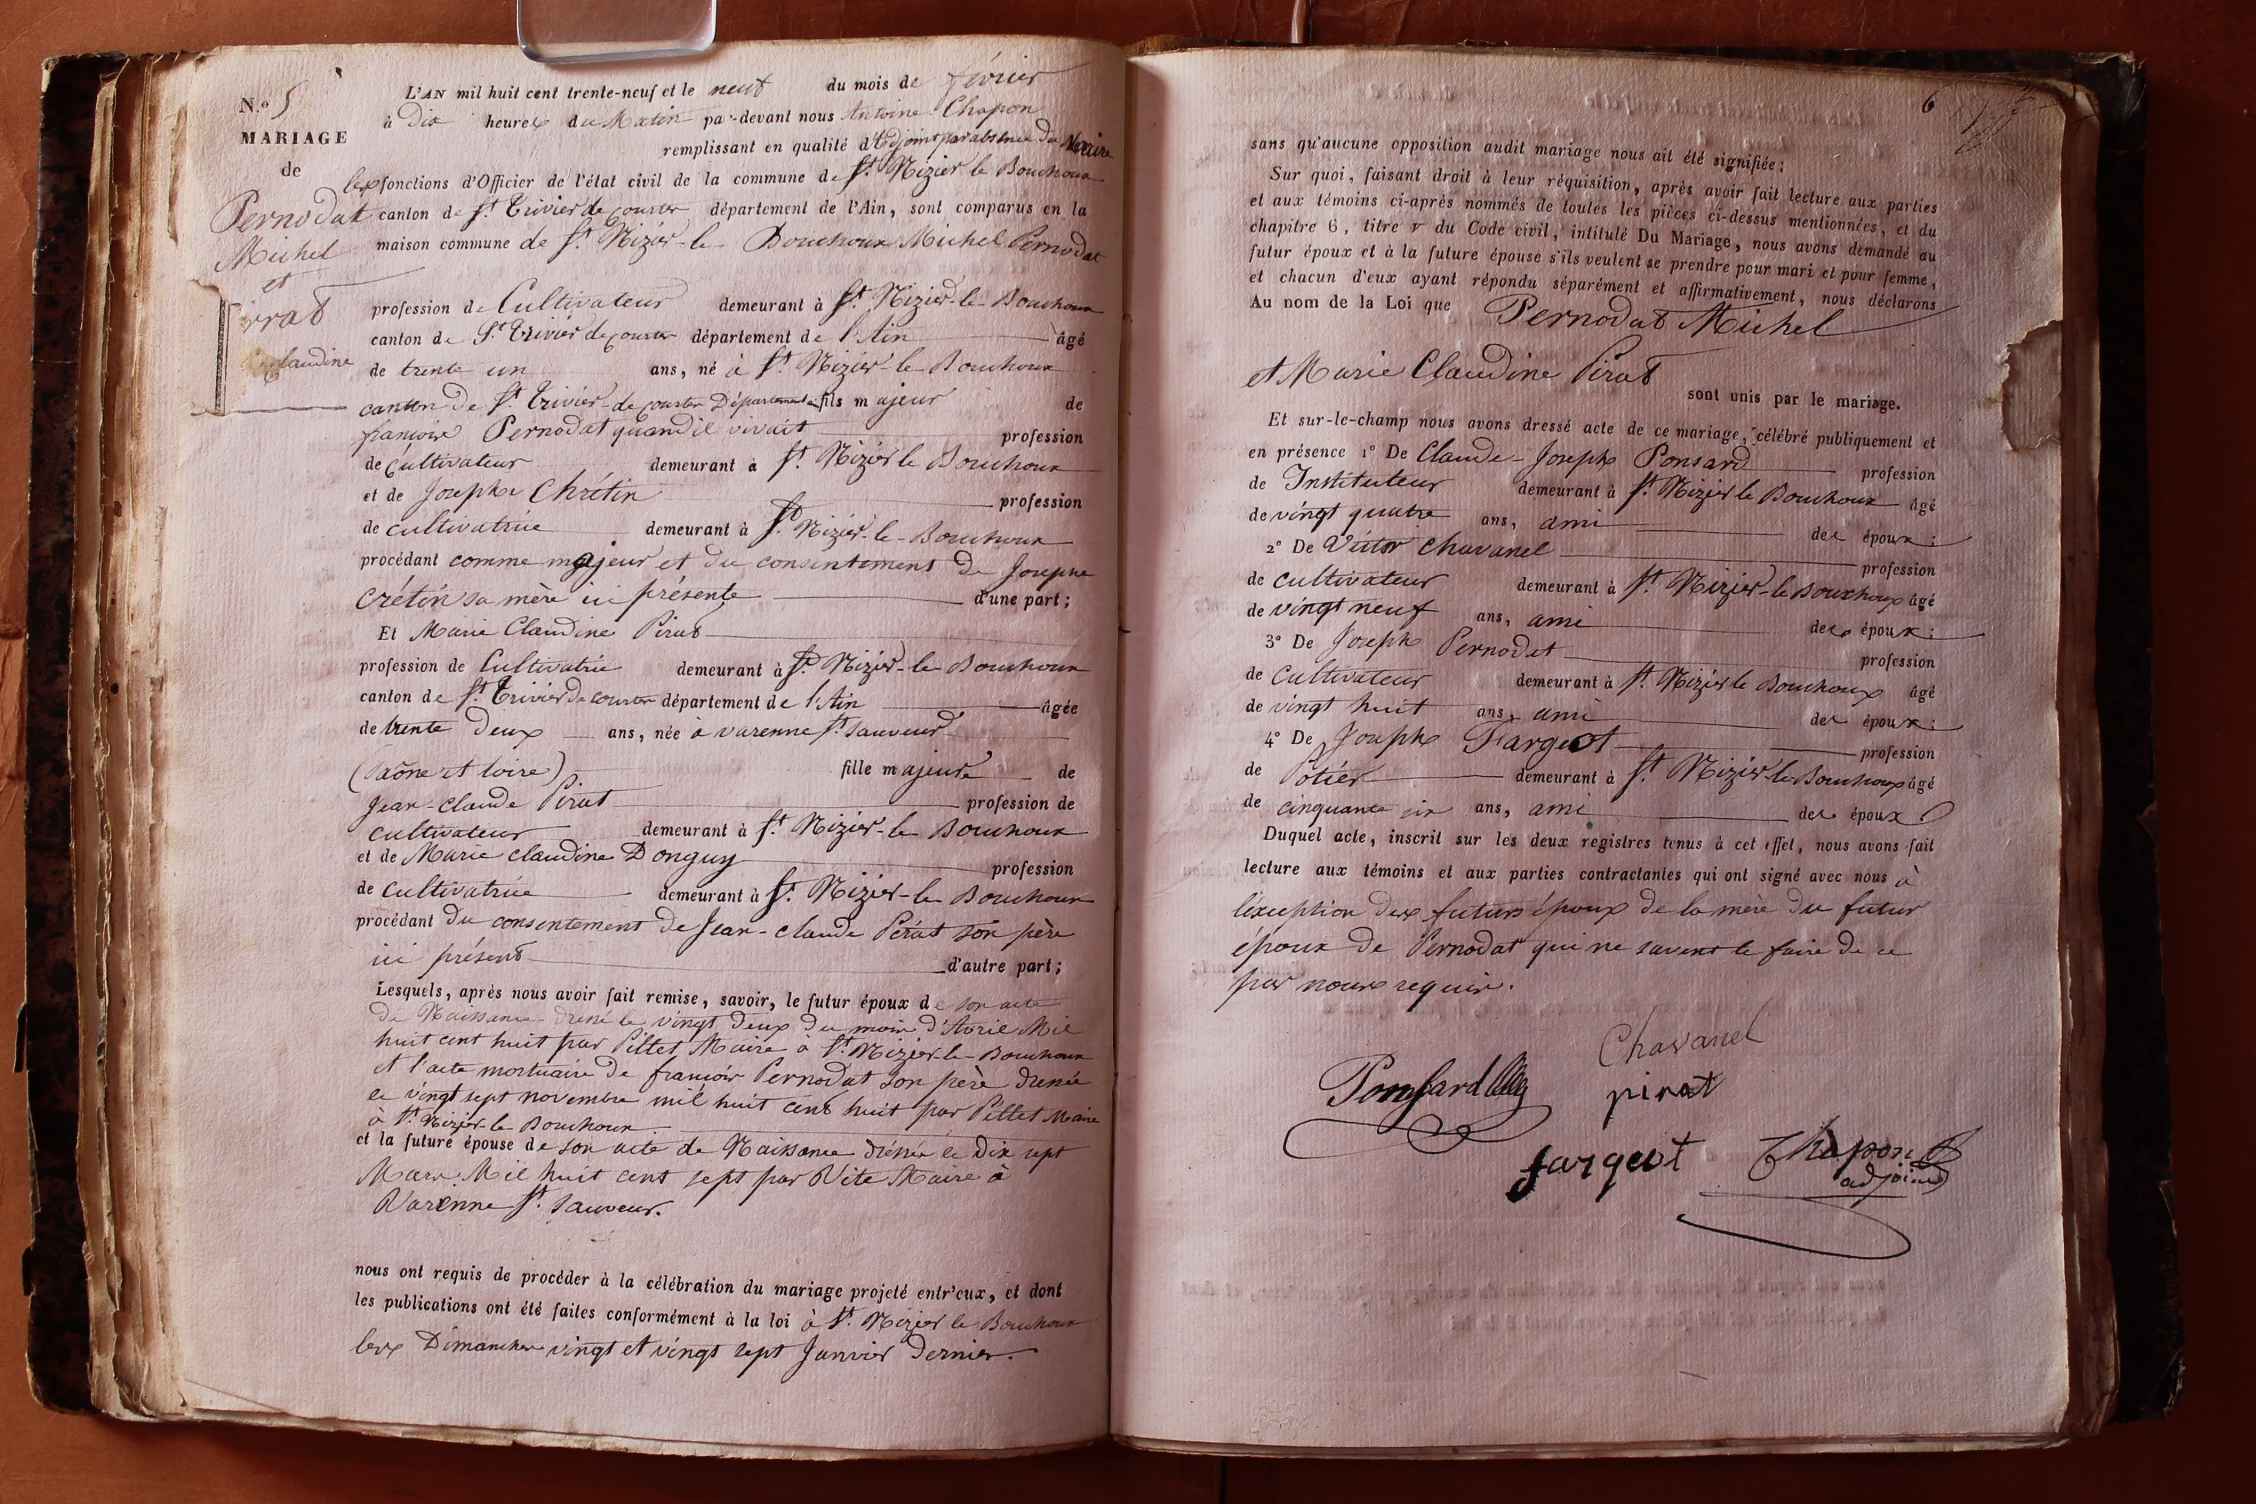 N.º 5
MARIAGE
de
Pernodat
Michel
et
Pirat
Claudine
L'AN mil huit cent trente-neuf et le neuf du mois de février
à Dix heures du Matin par-devant nous Antoine Chapon
remplissant en qualité d'Adjoint par absence du Maire
les fonctions d'Officier de l'état civil de la commune de St. Nizier le Bouchoux
canton de St. Trivier de courtes département de l'Ain, sont comparus en la
maison commune de St. Nizier-le-Bouchoux Michel Pernodat
profession de Cultivateur demeurant à St. Nizier-le-Bouchoux
canton de St. Trivier de courtes département de l'Ain âgé
de trente un ans, né à St. Nizier-le-Bouchoux
canton de St. Trivier-de courtes Département fils majeur de
françois Pernodat quand il vivait profession
de cultivateur demeurant à St. Nizier le Bouchoux
et de Josephe Chrétin profession
de cultivatrice demeurant à St. Nizier-le-Bouchoux
procédant comme majeur et du consentement de Josephe
Crétin sa mère ici présente d'une part;
Et Marie Claudine Pirat
profession de Cultivatrice demeurant à St. Nizier-le-Bouchoux
canton de St. Trivier de courtes département de l'Ain âgée
de trente deux ans, née à varenne St. Sauveur
(Saône et loire) fille majeure de
Jean-claude Pirat profession de
cultivateur demeurant à St. Nizier-le-Bouchoux
et de Marie claudine Donguy profession
de cultivatrice demeurant à St. Nizier-le-Bouchoux
procédant Du consentement de Jean-claude Pirat son père
ici présent d'autre part;
Lesquels, après nous avoir fait remise, savoir, le futur époux de son acte
De Naissance dressé le vingt deux du mois d'Avril Mil
huit cent huit par Pillet Maire à St. Nizier-le-Bouchoux
et l'acte mortuaire de françois Pernodat son père dressé
le vingt sept novembre mil huit cent huit par Pillet Maire
à St. Nizier-le Bouchoux
et la future épouse de son acte de Naissance dressé le Dix sept
Mars Mil huit cent sept par Vite Maire à
Varenne St. Sauveur.
nous ont requis de procéder à la célébration du mariage projeté entr'eux, et dont
les publications ont été faites conformément à la loi à St. Nizier le Bouchoux
les Dimanches vingt et vingt sept Janvier Dernier.
6
sans qu'aucune opposition audit mariage nous ait été signifiée;
Sur quoi, faisant droit à leur réquisition, après avoir fait lecture aux parties
et aux témoins ci-après nommés de toutes les pièces ci-dessus mentionnées, et du
chapitre 6, titre v du Code civil, intitulé Du Mariage, nous avons demandé au
futur époux et à la future épouse s'ils veulent se prendre pour mari et pour femme,
et chacun d'eux ayant répondu séparément et affirmativement, nous déclarons
Au nom de la Loi que Pernodat Michel
et Marie Claudine Pirat
sont unis par le mariage.
Et sur-le-champ nous avons dressé acte de ce mariage, célébré publiquement et
en présence 1º De Claude-Joseph Ponsard profession
de Instituteur demeurant à St. Nizier le Bouchoux âgé
de vingt quatre ans, ami des époux;
2º De Victor Chavanel profession
de cultivateur demeurant à St. Nizier-le Bouchoux âgé
de vingt neuf ans, ami des époux;
3º De Joseph Pernodat profession
de Cultivateur demeurant à St. Nizier le Bouchoux âgé
de vingt huit ans, ami des époux;
4º De Joseph Fargeot profession
de Potier demeurant à St. Nizier-le Bouchoux âgé
de cinquante six ans, ami des époux.
Duquel acte, inscrit sur les deux registres tenus à cet effet, nous avons fait
lecture aux témoins et aux parties contractantes qui ont signé avec nous à
l'exception des futurs époux de la mère du futur
époux de Pernodat qui ne savent le faire de ce
par nous requis.
Chavanel
Ponsard pirat
fargeot Chapon
adjoint